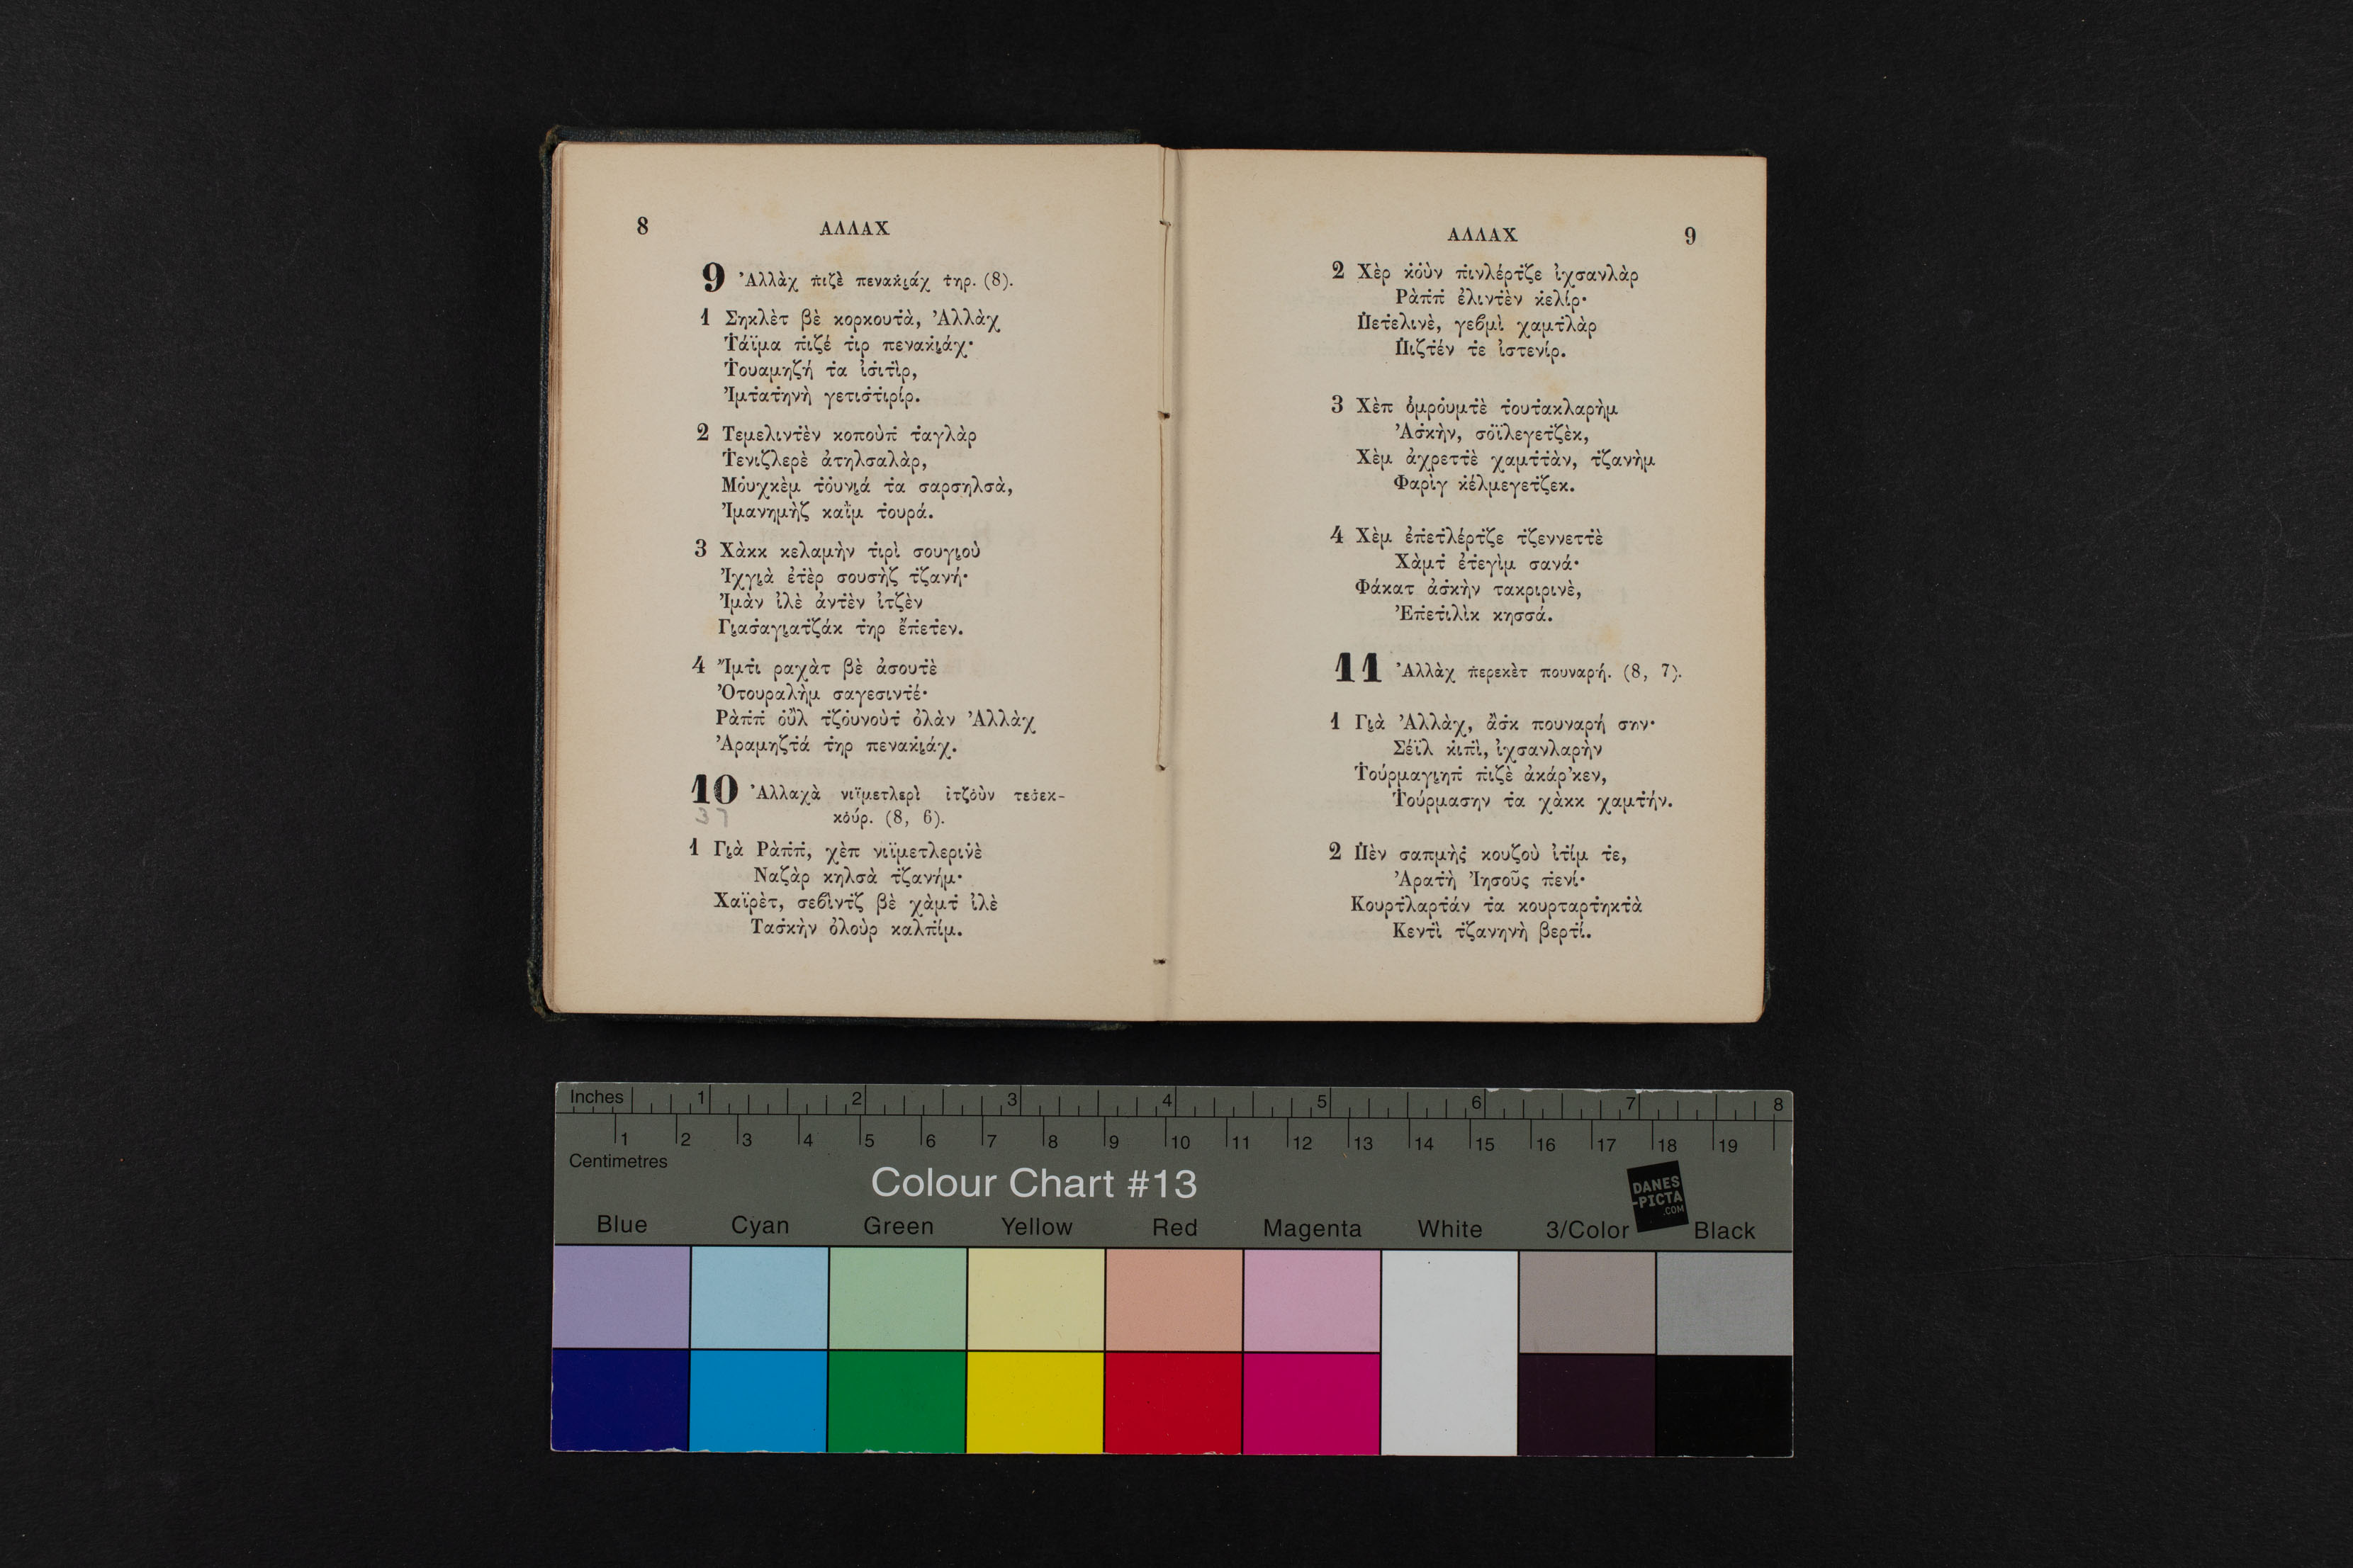 8 ΑΛΛΑΧ
9 Ἀλλὰχ π̇ιζὲ πενακι̰άχ τ̇ηρ. (8).
1 Σηκλὲτ βὲ κορκουτ̇ὰ, Ἀλλὰχ
Τ̇άϊμα π̇ιζέ τ̇ιρ πενακι̰άχ·
Τ̇ουαμηζή τ̇α ἰσ̇ιτ̇ὶρ,
Ἰμτ̇ατ̇ηνὴ γετιστ̇ιρίρ.
2 Τεμελιντ̇ὲν κοποὺπ̇ τ̇αγλὰρ
Τ̇ενιζλερὲ ἀτηλσαλὰρ,
Μὀυχκὲμ τ̇ὀυνι̰ά τ̇α σαρσηλσὰ,
Ἰμανημὴζ καῒμ τ̇ουρά.
3 Χὰκκ κελαμὴν τ̇ιρὶ σουγι̰οὺ
Ἰχγι̰ὰ ἐτ̇ὲρ σουσὴζ τ̇ζανή·
Ἰμὰν ἰλὲ ἀντ̇ὲν ἰτζὲν
Γι̰ασ̇αγι̰ατ̇ζάκ τ̇ηρ ἔπ̇ετ̇εν.
4 Ἴμτ̇ι ραχὰτ βὲ ἀσουτ̇ὲ
Ὀτουραλὴμ σαγεσιντ̇έ·
Ρὰπ̇π̇ οὒλ τ̇ζὀυνοὺτ̇ ὀλὰν Ἀλλὰχ
Ἀραμηζτ̇ά τ̇ηρ πενακι̰άχ.
10 Ἀλλαχὰ νιϊμετλερὶ ἰτζὀὺν τεσ̇εκ-
37 κὀύρ. (8, 6).
1 Γι̰ὰ Ρὰπ̇π̇, χὲπ νιϊμετλερινὲ
Ναζὰρ κηλσὰ τ̇ζανήμ·
Χαϊρὲτ, σεβὶντ̇ζ βὲ χὰμτ̇ ἰλὲ
Τασ̇κὴν ὀλοὺρ καλπ̇ίμ.
ΑΛΛΑΧ 9
2 Χὲρ κ̇ὀὺν π̇ινλέρτ̇ζε ἰχσανλὰρ
Ρὰπ̇π̇ ἐλιντ̇ὲν κ̇ελίρ·
Π̇ετ̇ελινὲ, γεβμὶ χαμτ̇λὰρ
Π̇ιζτ̇έν τ̇ε ἰστενίρ.
3 Χὲπ ὀμρὀυμτ̇ὲ τ̇ουτ̇ακλαρὴμ
Ἀσ̇κὴν, σὀϊλεγετ̇ζὲκ,
Χὲμ ἀχρεττ̇ὲ χαμτ̇τ̇ὰν, τ̇ζανὴμ
Φαρὶγ κ̇έλμεγετ̇ζεκ.
4 Χὲμ ἐπ̇ετ̇λέρτ̇ζε τ̇ζεννεττ̇ὲ
Χὰμτ̇ ἐτ̇εγὶμ σανά·
Φάκατ ἀσ̇κὴν τακριρινὲ,
Ἐπ̇ετ̇ιλὶκ κησσά.
11 Ἀλλὰχ π̇ερεκὲτ πουναρή. (8, 7).
1 Γι̰ὰ Ἀλλὰχ, ἂσ̇κ πουναρή σην·
Σέϊλ κ̇ιπ̇ὶ, ἰχσανλαρὴν
Τ̇ούρμαγι̰ηπ̇ π̇ιζὲ ἀκάρ'κεν,
Τ̇ούρμασην τ̇α χὰκκ χαμτ̇ήν.
2 Π̇ὲν σαπμὴς̇ κουζοὺ ἰτ̇ίμ τ̇ε,
Ἀρατ̇ὴ Ἰησοῦς π̇ενί·
Κουρτ̇λαρτ̇άν τ̇α κουρταρτ̇ηκτ̇ὰ
Κεντ̇ὶ τ̇ζανηνὴ βερτ̇ί.
Inches 1 2 3 4 5 6 7 8
1 2 3 4 5 6 7 8 9 10 11 12 13 14 15 16 17 18 19
Centimetres
Colour Chart #13
DANES
-PICTA
.COM
Blue Cyan Green Yellow Red Magenta White 3/Color Black